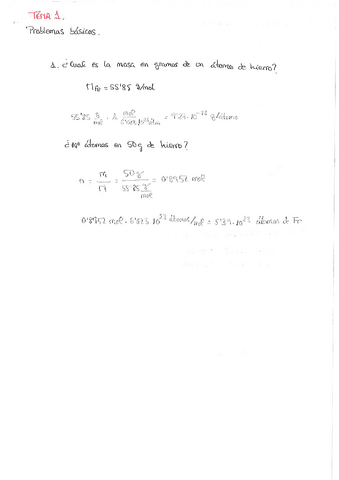 TEMA 1.
Problemas básicos.
1. ¿Cuál es la masa en gramos de un átomo de hierro?
M Fe = 55'85 g/mol
55'85 g/mol · 1 mol / = 9'27·10⁻²³ g/átomo
¿Nº átomos en 50g de hierro?
n = m/M = 50g / 55'85 g/mol = 0'8952 mol
0'8952 mol · 6'023·10²³ átomos/mol = 5'39·10²³ átomos de Fe